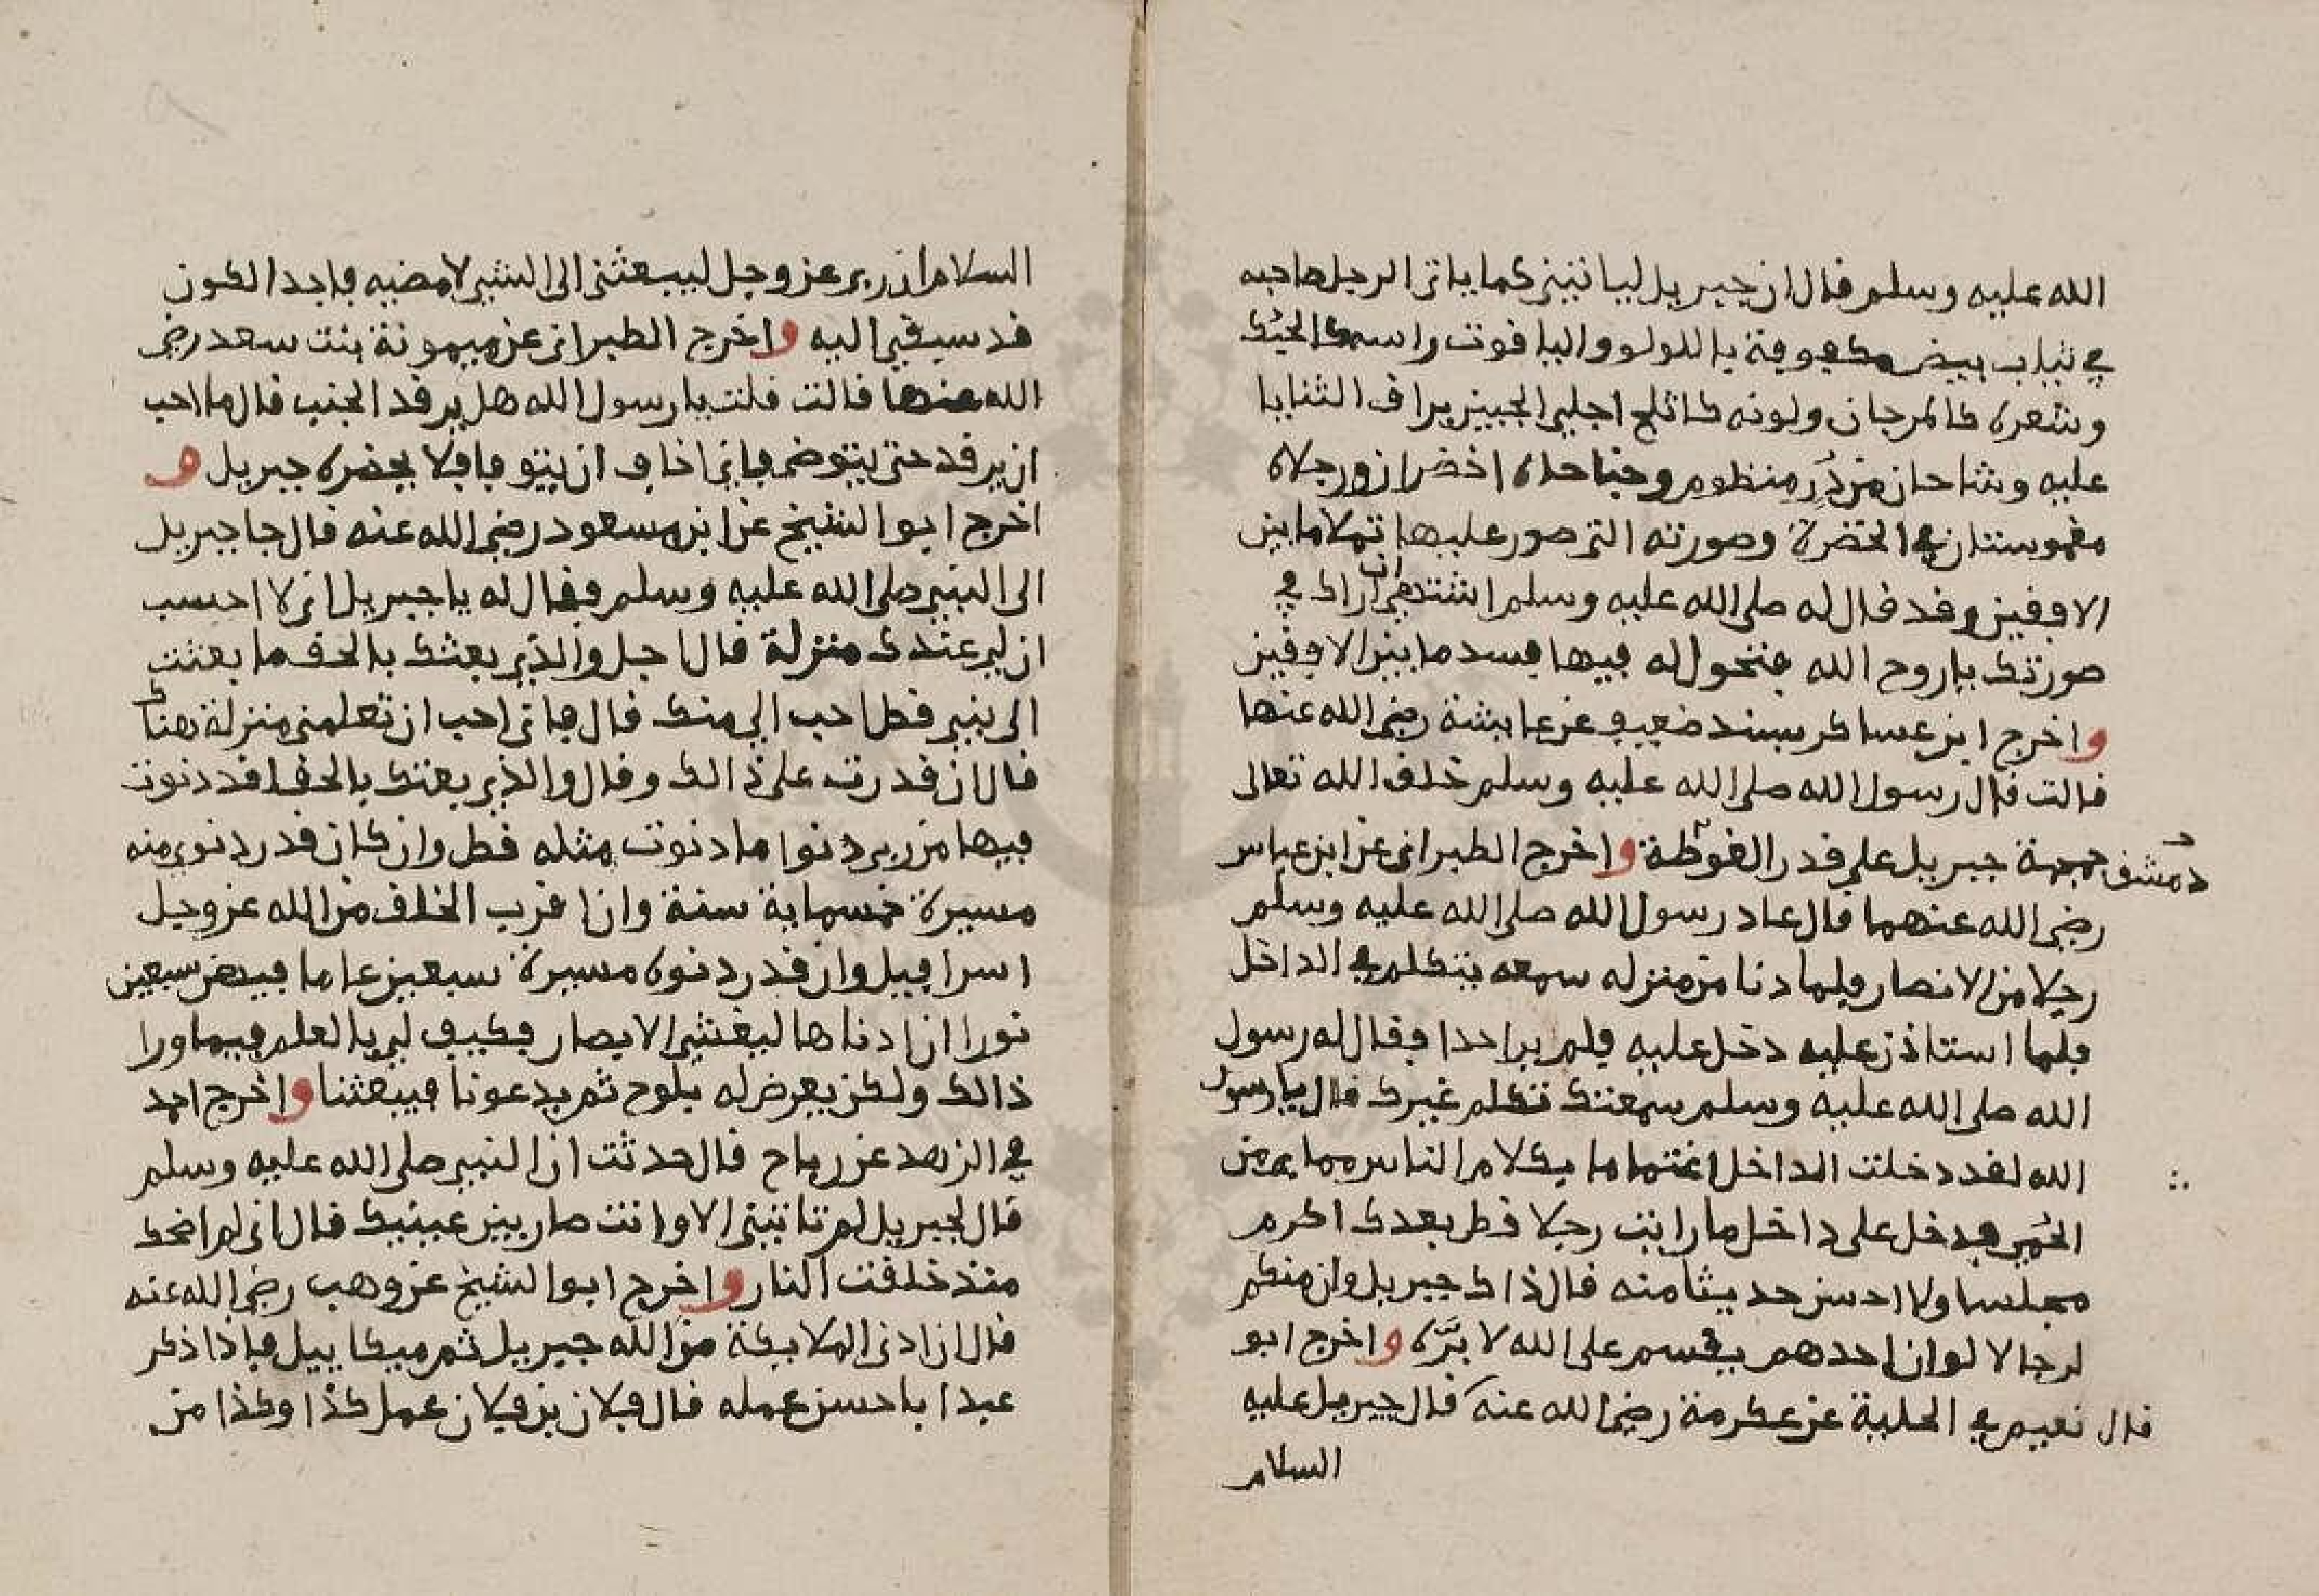 الله عليه وسلم قال ان جبريل ليا تيني كما ياتي الرجل صاحبه
في ثياب بيض مكفوفة بالللولوو واليا قوت راسه كالحبك
وشعره كالمرجان ولونه كالثلج اجلى الجبين براق الثنايا
عليه وشاحان من در منظوم وجناحاه اخضران ورجلاه
مغموستان في الخضرة وصورته التي صور عليها تملا ما بين
الافقين وقد قال له صلى الله عليه وسلم اشتهي ان اراك في
صورتك ياروح الله فتحول له فيها فسد ما بين الافقين
واخرج ابن عساكر بسند ضعيف عن عايشة رضي الله عنها
قالت قال رسول الله صلى الله عليه وسلم خلق الله تعالى
جمجمة جبريل على قدر الغوطة واخرج الطبراني عن ابن عباس
دمشق
رضي الله عنهما قال عاد رسول الله صلى الله عليه وسلم
رجلا من الانصار فلما دنا من منزله سمعه يتكلم في الداخل
فلما استاذن عليه دخل عليه فلم ير احدا فقال له رسول
الله صلى الله عليه وسلم سمعتك تكلم غيرك قال يا رسول
الله لقد دخلت الداخل اغتماما بكلام الناس مما بي من
الحمى فدخل علي داخل ما رايت رجلا قط بعدك اكرم
مجلسا ولا احسن حديثا منه قال ذاك جبريل وان منكم
لرجالا لو ان احدهم يقسم على الله لا بره واخرج ابو
نعيم في الحلية عن عكرمة رضي الله عنه قال جبريل عليه
قال
السلام
السلام ان ربي عز وجل ليبعثني الى الشي لا مضيه فاجد الكون
قد سبقني اليه واخرج الطبراني عن ميمونة بنت سعد رضي
الله عنها قالت قلت يا رسول الله هل يرقد الجنب قال ما احب
ان يرقد حتى يتوضى فاني اخاف ان يتوفا فلا يحضره جبريل و
اخرج ابو الشيخ عن ابن مسعود رضي الله عنه قال جا جبريل
الى النبي صلى الله عليه وسلم فقال له يا جبريل اني لا احسب
ان لي عندك منزلة قال اجل والذي بعثك بالحق ما بعثت
الى نبي قط احب الي منك قال فاني احب ان تعلمني منزلتي هناك
قال ان قدرت على ذالك وقال والذي بعثك بالحق لقد دنوت
فيها من ربي دنوا ما دنوت مثله قط وان كان قدر دنوي منه
مسيرة خمسماية سنة وان اقرب الخلق من الله عز وجل
اسرافيل وان قدر دنوه مسيرة سبعين عاما فيهن سبعين
نورا ان ادناها ليغشي الابصار فكيف لي بالعلم فيما ورا
ذالك ولكن يعرض له بلوح ثم يدعونا فيبعثنا واخرج احمد
في الزهد عن رباح قال حدثت ان النبي صلى الله عليه وسلم
قال لجبريل لم تاتيني الا وانت صار بين عينيك قال اني لم اضحك
منذ خلقت النار واخرج ابو الشيخ عن وهب رضي الله عنه
قال ان ادنى الملايكة من الله جبريل ثم ميكاييل فاذا ذكر
عبدا باحسن عمله قال فلان بن فلان عمل كذا وكذا من